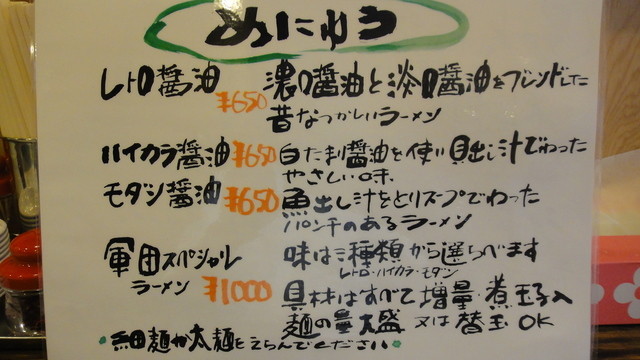 めにゅう
レトロ醤油 ¥650 濃口醤油と淡口醤油をブレンドした
昔なつかしいラーメン
ハイカラ醤油 ¥650 白たまり醤油を使い貝出し汁でわった
やさしい味、
モダン醤油 ¥650 魚出し汁をとりスープでわった
パンチのあるラーメン
軍団スペシャル 味は三種類から選らべます
ラーメン ¥1000 レトロ・ハイカラ・モダン
具材はすべて増量・煮玉子入
麺の量大盛 又は替玉OK
細麺か太麺をえらんでください